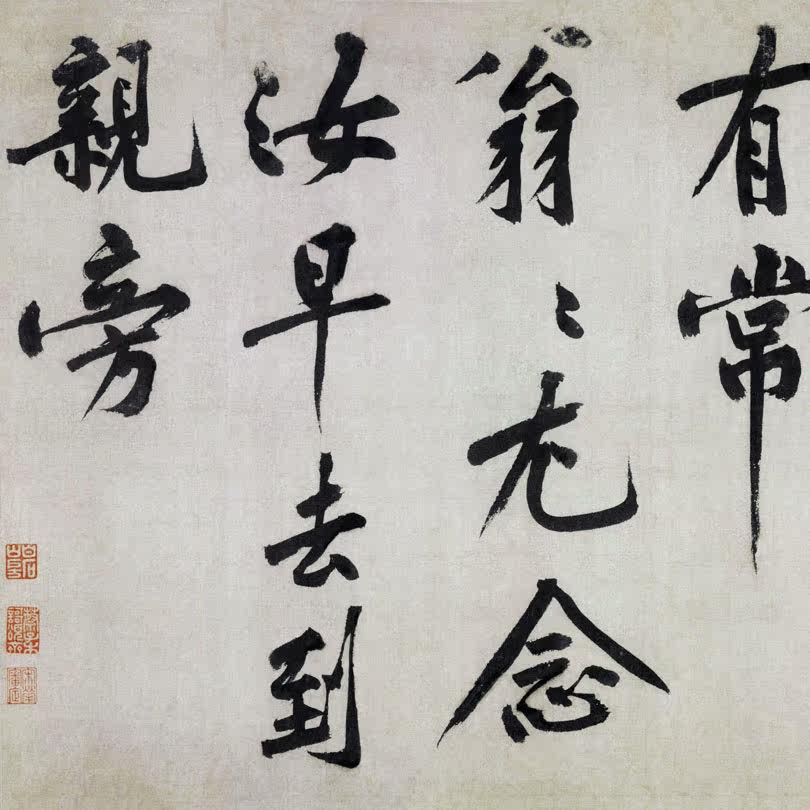 有常
翁〻尤念
汝早去到
親旁